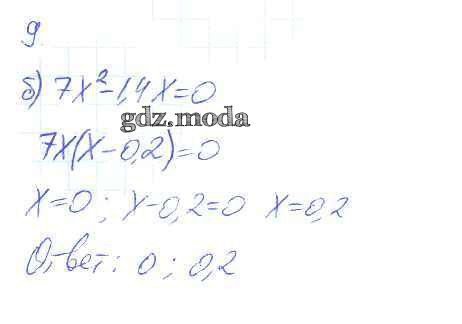 9.
б) 7x²-1,4x=0
gdz.moda
7x(x-0,2)=0
x=0; x-0,2=0 x=0,2
Ответ: 0; 0,2